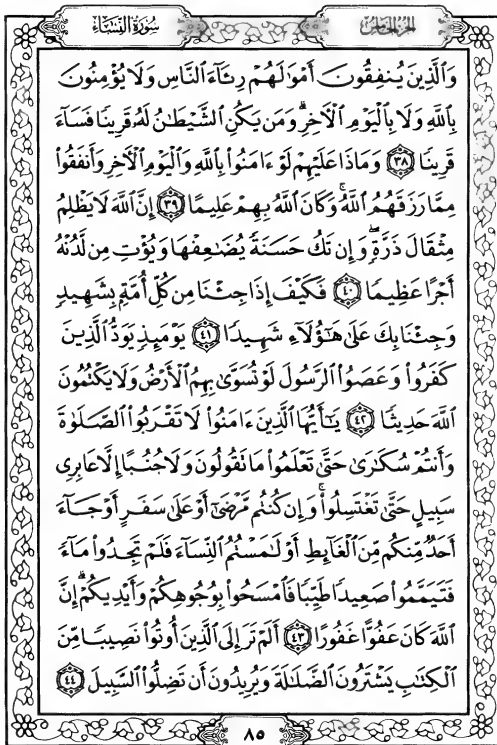 الجزء الخامس
سورة النساء
وَالَّذِينَ يُنفِقُونَ أَمْوَٰلَهُمْ رِئَآءَ النَّاسِ وَلَا يُؤْمِنُونَ
بِاللَّهِ وَلَا بِالْيَوْمِ الْآخِرِ ۗ وَمَن يَكُنِ الشَّيْطَٰنُ لَهُ قَرِينًا فَسَآءَ
قَرِينًا ٣٨ وَمَاذَا عَلَيْهِمْ لَوْ ءَامَنُوا بِاللَّهِ وَالْيَوْمِ الْآخِرِ وَأَنفَقُوا
مِمَّا رَزَقَهُمُ اللَّهُ ۚ وَكَانَ اللَّهُ بِهِمْ عَلِيمًا ٣٩ إِنَّ اللَّهَ لَا يَظْلِمُ
مِثْقَالَ ذَرَّةٍ ۖ وَإِن تَكُ حَسَنَةً يُضَٰعِفْهَا وَيُؤْتِ مِن لَّدُنْهُ
أَجْرًا عَظِيمًا ٤٠ فَكَيْفَ إِذَا جِئْنَا مِن كُلِّ أُمَّةٍ بِشَهِيدٍ
وَجِئْنَا بِكَ عَلَىٰ هَٰٓؤُلَآءِ شَهِيدًا ٤١ يَوْمَئِذٍ يَوَدُّ الَّذِينَ
كَفَرُوا وَعَصَوُا الرَّسُولَ لَوْ تُسَوَّىٰ بِهِمُ الْأَرْضُ وَلَا يَكْتُمُونَ
اللَّهَ حَدِيثًا ٤٢ يَٰٓأَيُّهَا الَّذِينَ ءَامَنُوا لَا تَقْرَبُوا الصَّلَوٰةَ
وَأَنتُمْ سُكَٰرَىٰ حَتَّىٰ تَعْلَمُوا مَا تَقُولُونَ وَلَا جُنُبًا إِلَّا عَابِرِى
سَبِيلٍ حَتَّىٰ تَغْتَسِلُوا ۚ وَإِن كُنتُم مَّرْضَىٰٓ أَوْ عَلَىٰ سَفَرٍ أَوْ جَآءَ
أَحَدٌ مِّنكُم مِّنَ الْغَآئِطِ أَوْ لَٰمَسْتُمُ النِّسَآءَ فَلَمْ تَجِدُوا مَآءً
فَتَيَمَّمُوا صَعِيدًا طَيِّبًا فَامْسَحُوا بِوُجُوهِكُمْ وَأَيْدِيكُمْ ۗ إِنَّ
اللَّهَ كَانَ عَفُوًّا غَفُورًا ٤٣ أَلَمْ تَرَ إِلَى الَّذِينَ أُوتُوا نَصِيبًا مِّنَ
الْكِتَٰبِ يَشْتَرُونَ الضَّلَٰلَةَ وَيُرِيدُونَ أَن تَضِلُّوا السَّبِيلَ ٤٤
٨٥